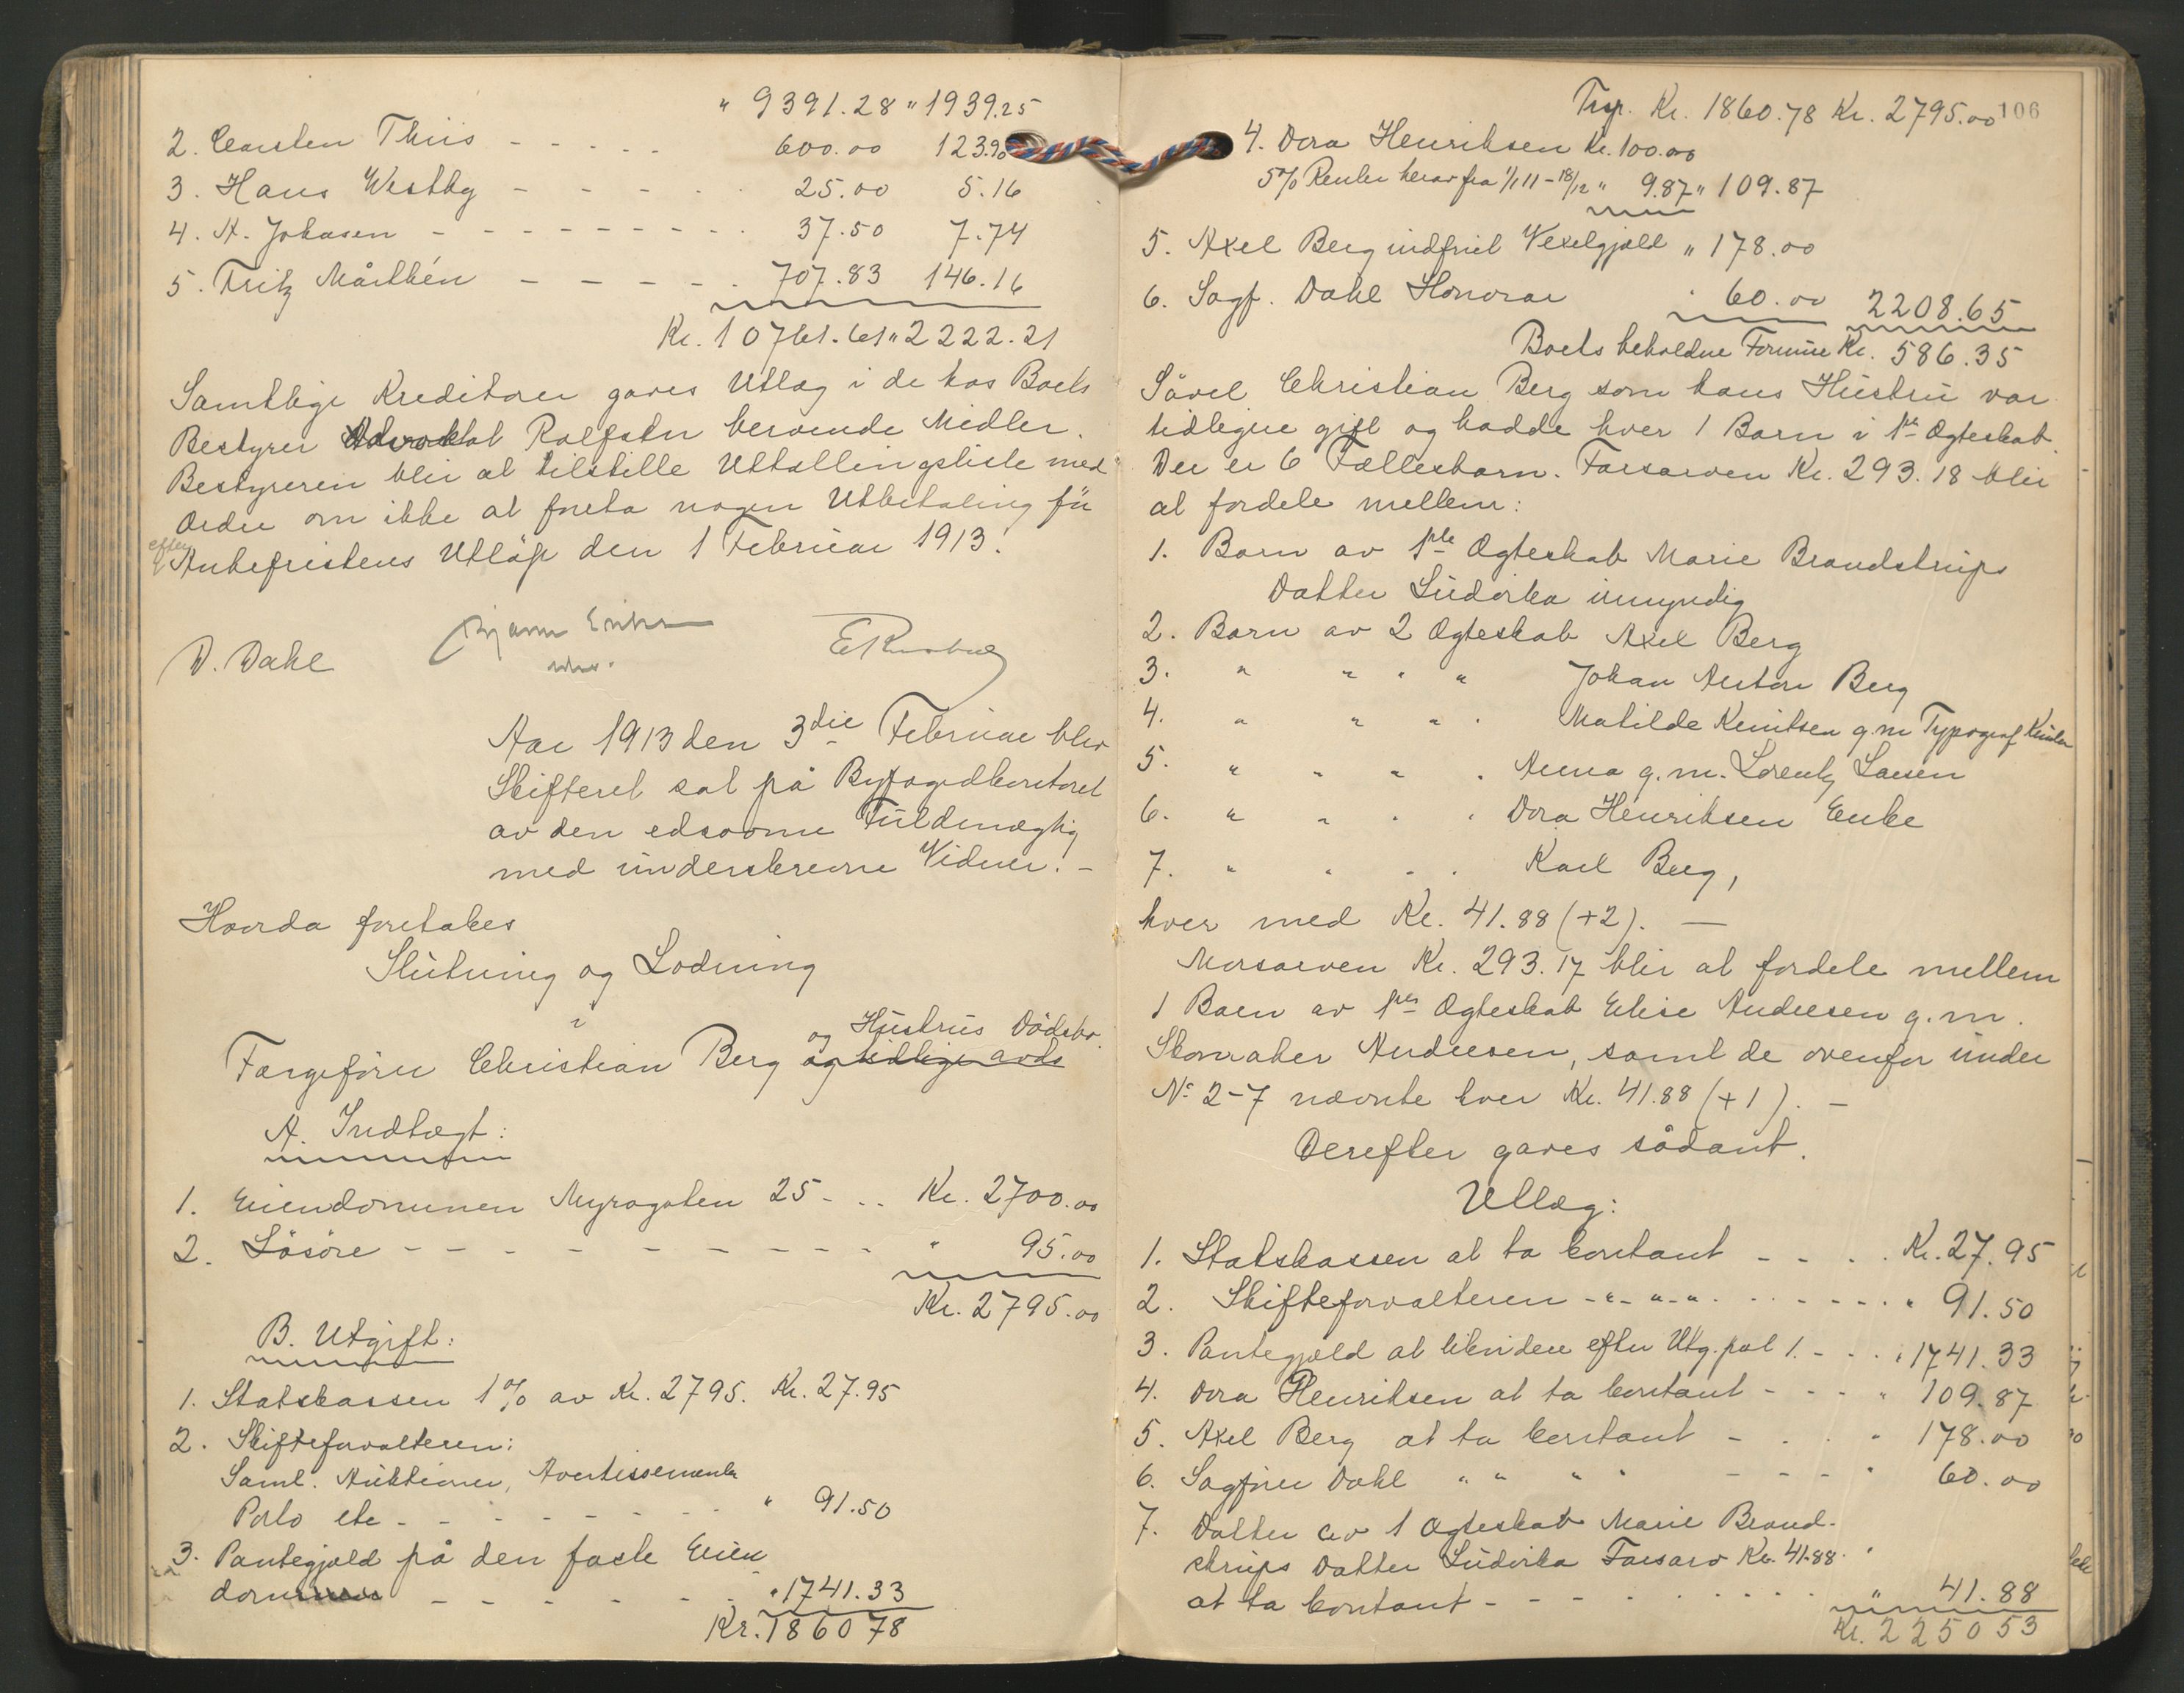 " 9391.28 " 1939.25
2. Carsten Thiis - - - - - 600.00 123.90
3. Hans Westby - - - - - 25.00 5.16
4. A. Johasen - - - - - - - - - 37.50 7.74
5. Fritz Mårthén - - - - - 707.83 146.16
Kr. 10761.61 " 2222.21
Samtlige Kreditorer gaves Utlæg i de hos Boets
Bestyrer Rolfsen beroende Midler.
Bestyreren blir at tilstille Uttællingsliste med
Ordre om ikke at foreta nogen Utbetaling før
efter Ankefristens Utløp den 1 Februar 1913.
D. Dahl
Aar 1913 den 3die Februar blev
Skifteret sat på Byfogedkontoret
av den edsvorne Fuldmægtig
med underskrevne Vidner. -
Hvorda foretokes
Slutning og Lodning
i
Færgefører Christian Berg og Hustrus Dødsbo.
A. Indtægt:
1. Eiendommen Myragaten 25 - .. Kr. 2700.00
2. Løsøre - - - - - - - - - - " 95.00
Kr. 2795.00
B. Utgift:
1. Statskassen 1% av Kr. 2795. Kr. 27.95
2. Skifteforvalteren:
Saml. Auktioner, Avertissementer
Porto etc - - - - - - - " 91.50
3. Pantegjæld på den faste Eien
dommen - - - - - - - " 1741.33
Kr. 1860 78
106
Trsp. Kr. 1860.78 Kr. 2795.00
4. Dora Henriksen Kr. 100.00
5% Renter herav fra 1/1 11 - 18/12 " 9.87 " 109.87
5. Axel Berg indfriet Vexelgjæld " 178.00
6. Sagf. Dahl Honorar " 60.00 2208.65
Boets beholdne Formue Kr. 586.35
Såvel Christian Berg som hans Hustru var
tidligere gift og hadde hver 1 Barn i 1ste Ægteskab.
Der er 6 Fællesbarn. Farsarven Kr. 293.18 blir
at fordele mellem:
1. Barn av 1ste Ægteskab Marie Brandstrups
Datter Ludvika umyndig
2. Barn av 2 Ægteskab Axel Berg
3. " " " " Johan Anton Berg
4. " " " " Matilde Knutsen g.m Typograf
5. " " " " Anna g.m. Lorentz Larsen
6. " " " " Dora Henriksen Enke
7. " " " " Karl Berg,
hver med Kr. 41.88 (+2). —
Morsarven Kr. 293.17 blir at fordele mellem
1 Barn av 1ste Ægteskab Elise Andresen g.m.
Skomaker Andresen, samt de ovenfor under
No 2-7 nævnte hver Kr. 41.88 (+1). -
Derefter gaves sådant.
Utlæg:
1. Statskassen at ta kontant - - - . Kr. 27.95
2. Skifteforvalteren - " - " - " . . - - - . " 91.50
3. Pantegjæld at likvidere efter Utg. pst 1. - - . " 1741.33
4. Dora Henriksen at ta kontant - - - " 109.87
5. Axel Berg at ta kontant - . . " 178.00
6. Sagfører Dahl " " " " - - - " 60.00
7. Datter av 1 Ægteskab Marie Brand-
strups Datter Ludvika Farsarv Kr. 41.88.
at ta kontant - - - . . . . . " 41.88
Kr. 2250 53